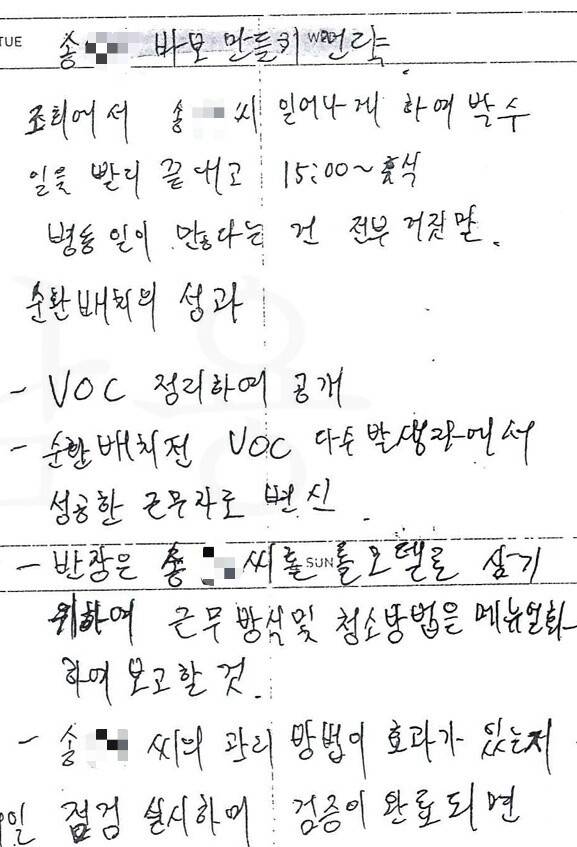 TUE 송 바보 만들기 WED 먼락
조회에서 송 씨 일어나게 하여 박수
일을 빨리 끝내고 15:00~휴식
병동 일이 많다는 건 전부 거짓말.
순환배치의 성과
- VOC 정리하여 공개
- 순환배치전 VOC 다수 발생자에서
성공한 근무자로 변신.
- 반장은 송 씨를 SUN 롤모델로 삼기
위하여 근무 방식및 청소방법은 메뉴얼화
하여 보고할 것.
- 송 씨의 관리 방법이 효과가 있는지
일 점검 실시하여 검증이 완료되면